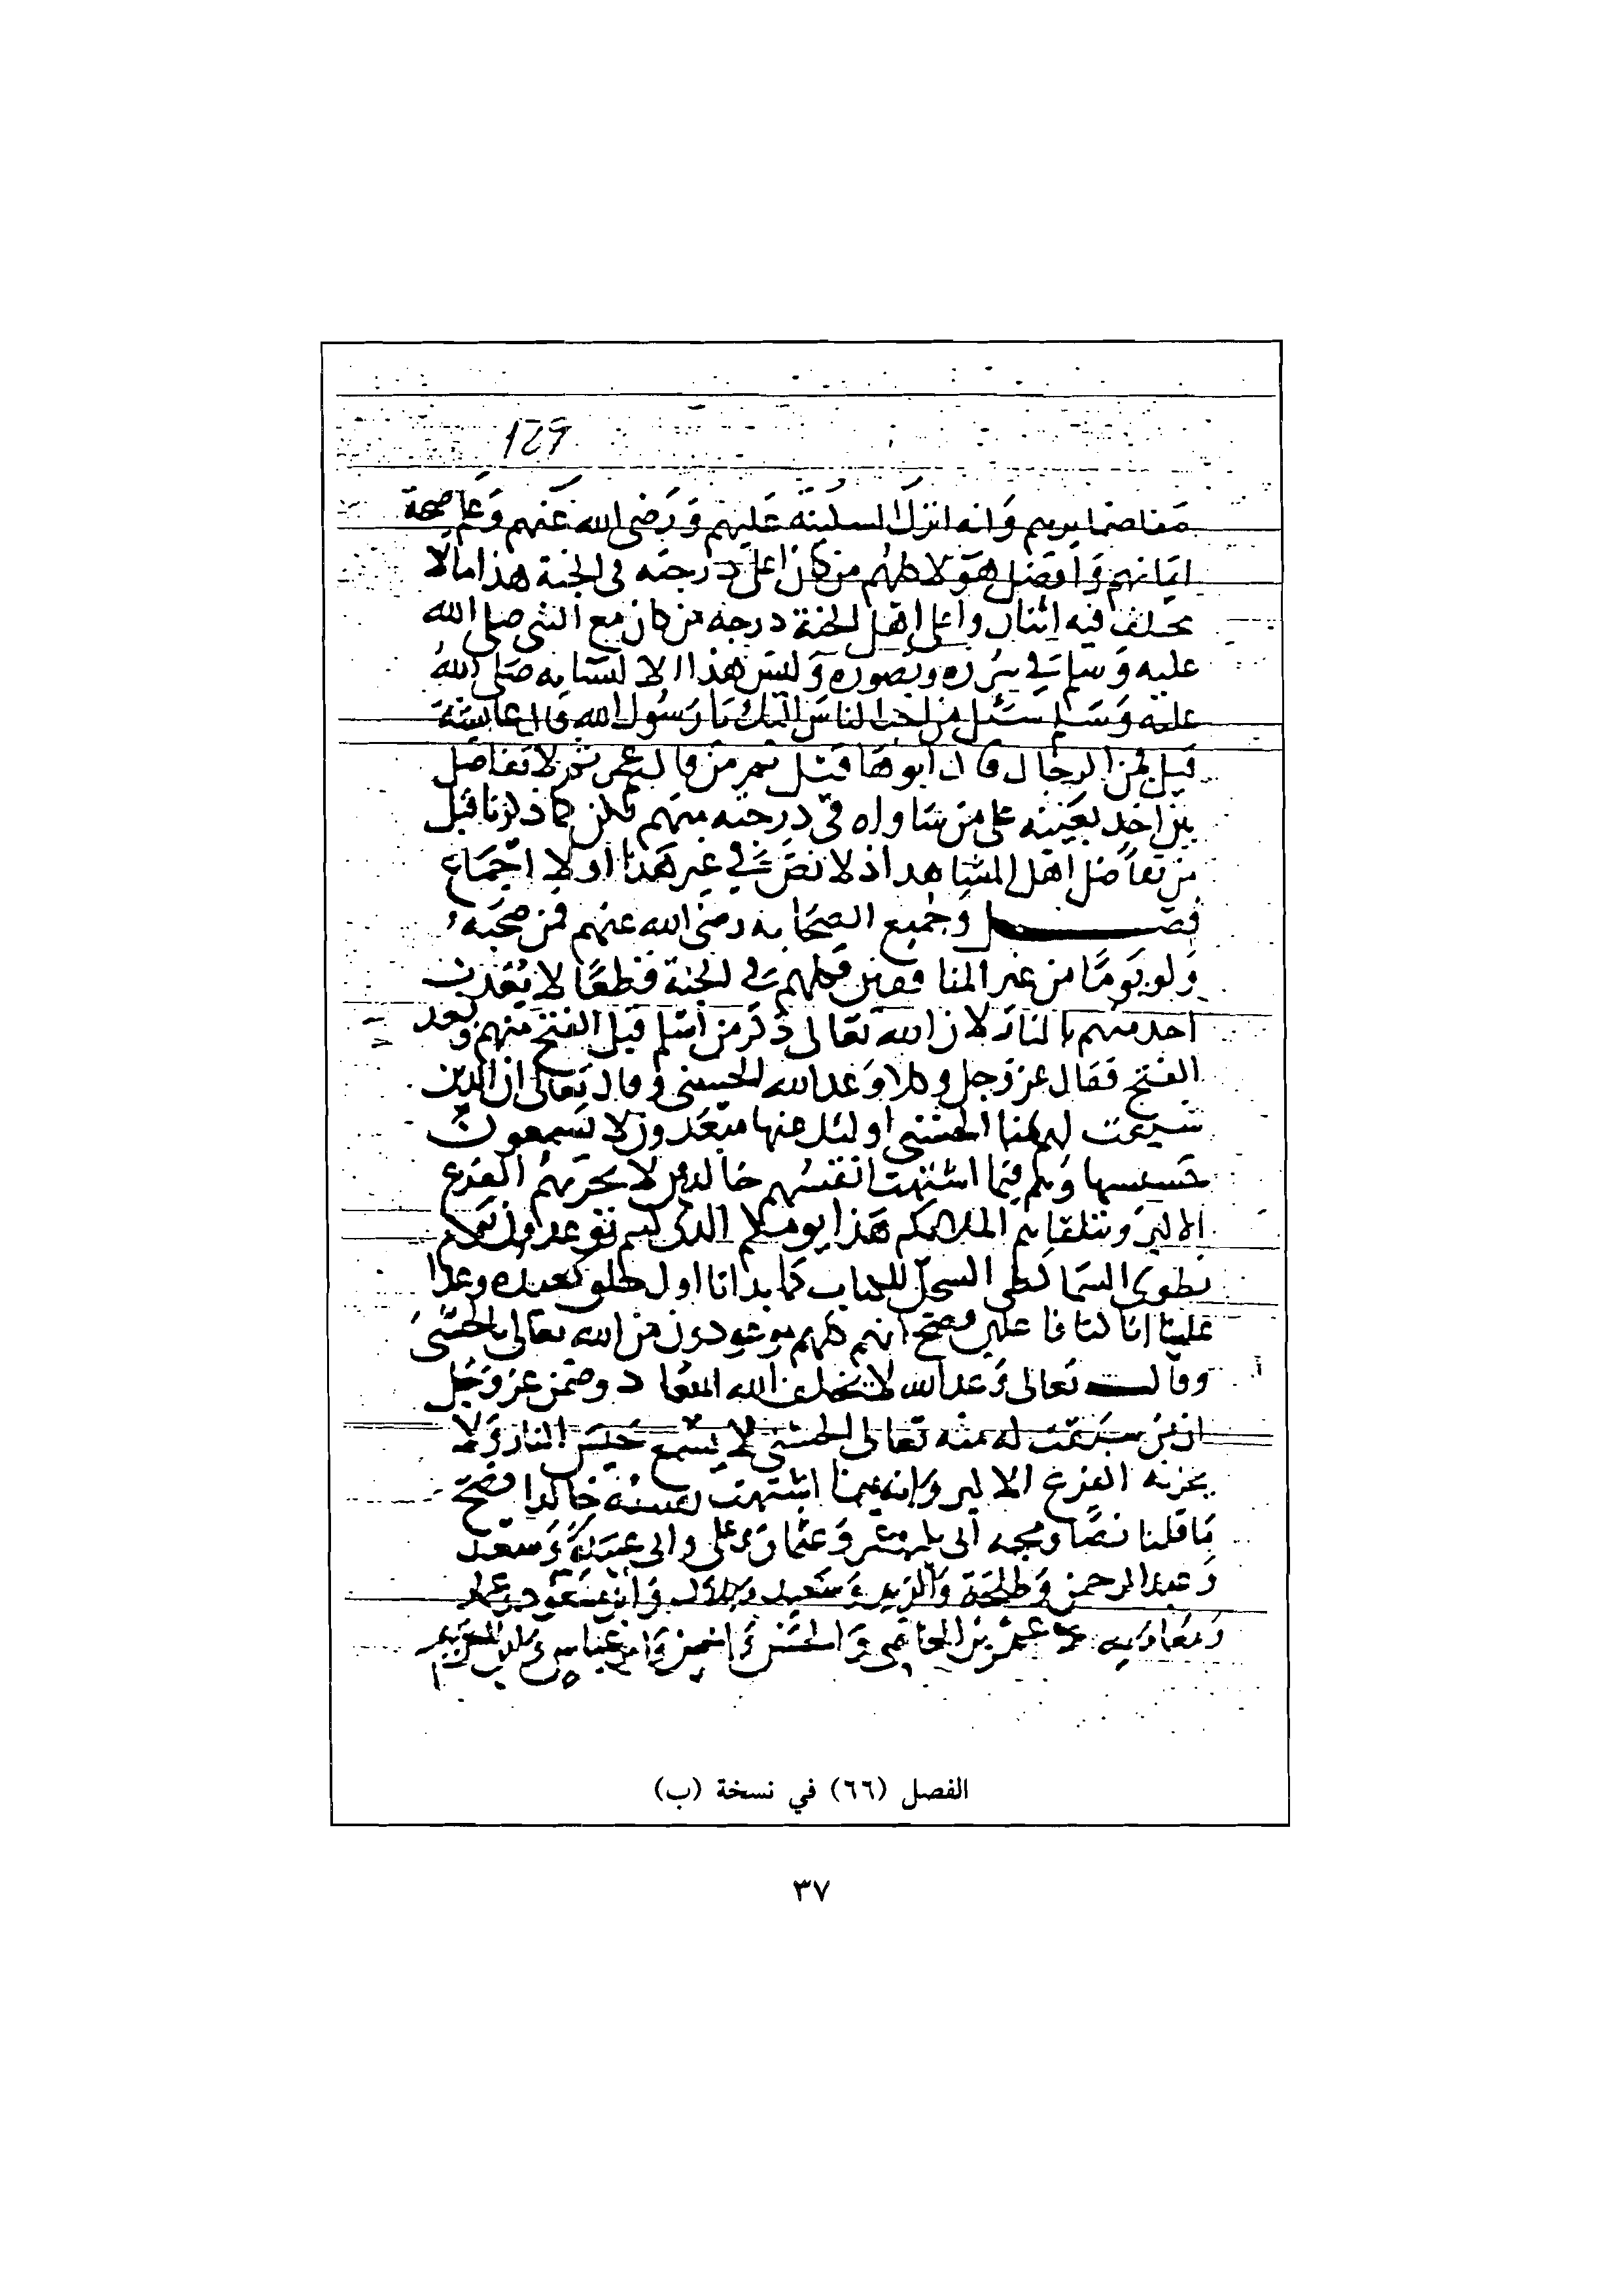 129
وانه انزل السكينة عليهم ورضى الله عنهم وعلم صحة
ايمانهم وافضل هولا كلهم من كان اعلى درجه فى الجنة هذا ما لا
يختلف فيه اثنان واعلى اهل الجنة درجه من كان مع النبى صلى الله
عليه وسلم فى وليس هذا الا لنسايه صلى الله
عليه وسلم سئل من احب الناس اليك يا رسول الله قال عايشة
قيل فمن الرجال قال ابوها قيل ثم من قال عمر ثم لا تفاضل
بين احد بعينه على من ساواه فى درجته منهم لكن كما ذكرنا قبل
من تفاضل اهل المشاهد اذ لا نص فى غير هذا ولا اجماع
فصل وجميع الصحابه رضى الله عنهم فمن صحبه
ولو يوما من غير المنافقين فكلهم فى الجنة قطعا لا يعذب
احد منهم بالنار لان الله تعالى ذكر من اسلم قبل الفتح منهم وبعد
الفتح فقال عز وجل وكلا وعد الله الحسنى وقال تعالى ان الذين
سبقت لهم منا الحسنى اوليك عنها مبعدون لا يسمعون
حسيسها وهم فيما اشتهت انفسهم خالدين لا يحزنهم الفزع
الاكبر وتتلقاهم الملايكه هذا يومكم الذى كنتم توعدون يوم
نطوى السما كطى السجل للكتاب كما بدانا اول خلق نعيده وعدا
علينا انا كنا فاعلين فصح انهم كلهم موعودون من الله تعالى بالحسنى
وقال تعالى وعد الله لا يخلف الله الميعاد وضمن عز وجل
ان من سبقت له منه تعالى الحسنى لا يسمع حسيس النار ولا
يحزنه الفزع الاكبر وانه فيما اشتهت نفسه خالدا فصح
ما قلنا نصا ومحبه ابى بكر وعمر وعثمان وعلى وابى عبيدة وسعد
وعبد الرحمن وطلحة والزبير وسعيد وبلال وابن مسعود
ومعاويه وعمرو بن العاصى والحسن والحسين وابن عباس
الفصل (٦٦) في نسخة (ب)
٣٧